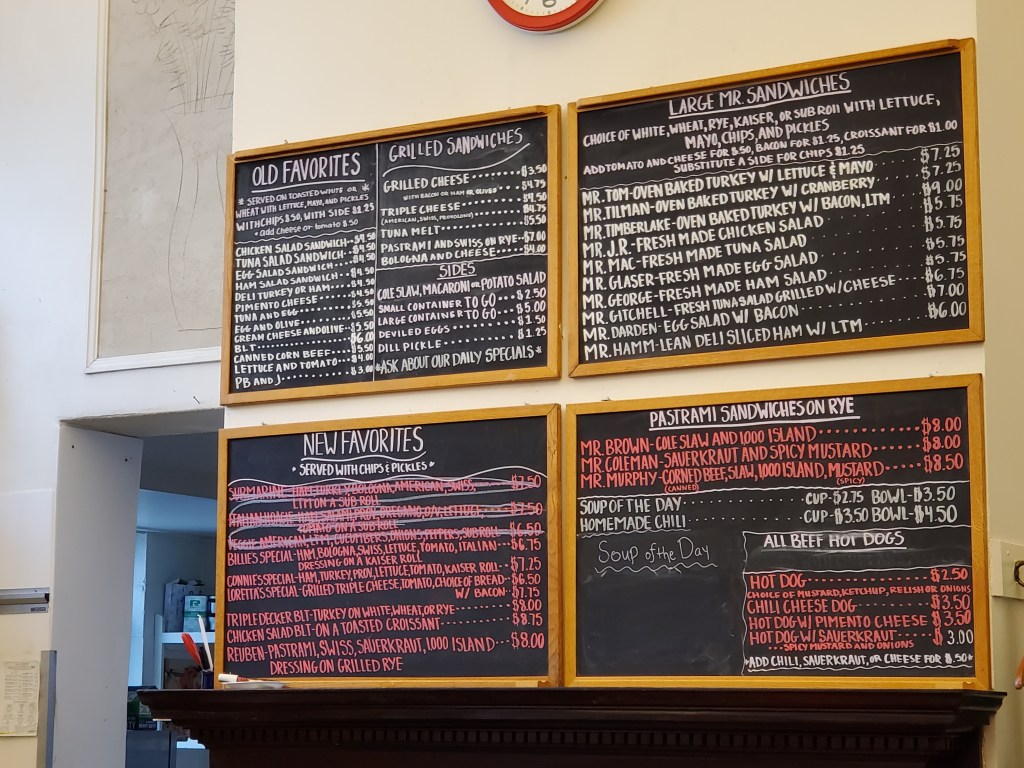 OLD FAVORITES
* SERVED ON TOASTED WHITE OR *
WHEAT WITH LETTUCE, MAYO, AND PICKLES
WITH CHIPS $.50, WITH SIDE $1.25
~ add cheese or tomato $.50
CHICKEN SALAD SANDWICH
TUNA SALAD SANDWICH
EGG SALAD SANDWICH
HAM SALAD SANDWICH $4.50
DELI TURKEY OR HAM $4.50
PIMENTO CHEESE
TUNA AND EGG
EGG AND OLIVE
CREAM CHEESE AND OLIVE $5.50
BLT $6.00
CANNED CORN BEEF $5.50
LETTUCE AND TOMATO $4.00
PB AND J $3.00
GRILLED SANDWICHES
GRILLED CHEESE $3.50
WITH BACON OR HAM OR OLIVES $4.75
TRIPLE CHEESE $4.50
(AMERICAN, SWISS, PROVOLONE) $4.75
TUNA MELT $5.50
PASTRAMI AND SWISS ON RYE $7.00
BOLOGNA AND CHEESE $4.00
SIDES
COLE SLAW, MACARONI OR POTATO SALAD
SMALL CONTAINER TO GO $2.50
LARGE CONTAINER TO GO $5.00
DEVILED EGGS $1.50
DILL PICKLE $1.25
*ASK ABOUT OUR DAILY SPECIALS*
LARGE MR. SANDWICHES
CHOICE OF WHITE, WHEAT, RYE, KAISER, OR SUB ROLL WITH LETTUCE,
MAYO, CHIPS, AND PICKLES
ADD TOMATO AND CHEESE FOR $.50, BACON FOR $1.25, CROISSANT FOR $1.00
SUBSTITUTE A SIDE FOR CHIPS $1.25
MR. TOM-OVEN BAKED TURKEY W/ LETTUCE & MAYO $7.25
MR. TILMAN-OVEN BAKED TURKEY W/ CRANBERRY $7.25
MR. TIMBERLAKE-OVEN BAKED TURKEY W/ BACON, LTM $9.00
MR. J.R.-FRESH MADE CHICKEN SALAD
MR. MAC-FRESH MADE TUNA SALAD $5.75
MR. GLASER-FRESH MADE EGG SALAD
MR. GEORGE-FRESH MADE HAM SALAD $5.75
MR. GITCHELL-FRESH TUNA SALAD GRILLED W/ CHEESE $6.75
MR. DARDEN-EGG SALAD W/ BACON $7.00
MR. HAMM-LEAN DELI SLICED HAM W/ LTM $6.00
NEW FAVORITES
• SERVED WITH CHIPS & PICKLES •
SUBMARINE-HAM, TURKEY, BOLOGNA, AMERICAN, SWISS, $7.50
LTM ON A SUB ROLL
LETTUCE $7.50
TOMATO ON A SUB ROLL
VEGGIE-AMERICAN, LTM, CUCUMBERS, ONIONS, PEPPERS, SUB ROLL $6.50
BILLIES SPECIAL-HAM, BOLOGNA, SWISS, LETTUCE, TOMATO, ITALIAN $6.75
DRESSING ON A KAISER ROLL
CONNIES SPECIAL-HAM, TURKEY, PROV, LETTUCE, TOMATO, KAISER ROLL $7.25
LORETTA'S SPECIAL-GRILLED TRIPLE CHEESE, TOMATO, CHOICE OF BREAD $6.50
W/ BACON $7.75
TRIPLE DECKER BLT-TURKEY ON WHITE, WHEAT, OR RYE $8.00
CHICKEN SALAD BLT-ON A TOASTED CROISSANT $8.75
REUBEN-PASTRAMI, SWISS, SAUERKRAUT, 1,000 ISLAND $8.00
DRESSING ON GRILLED RYE
PASTRAMI SANDWICHES ON RYE
MR. BROWN-COLE SLAW AND 1,000 ISLAND $8.00
MR. COLEMAN-SAUERKRAUT AND SPICY MUSTARD $8.00
MR. MURPHY-CORNED BEEF, SLAW, 1,000 ISLAND, MUSTARD $8.50
(CANNED) (SPICY)
SOUP OF THE DAY CUP-$2.75 BOWL-$3.50
HOMEMADE CHILI CUP-$3.50 BOWL-$4.50
Soup of the Day
ALL BEEF HOT DOGS
HOT DOG $2.50
CHOICE OF MUSTARD, KETCHUP, RELISH OR ONIONS
CHILI CHEESE DOG $3.50
HOT DOG W/ PIMENTO CHEESE $3.50
HOT DOG W/ SAUERKRAUT $3.00
SPICY MUSTARD AND ONIONS
*ADD CHILI, SAUERKRAUT, OR CHEESE FOR $.50*